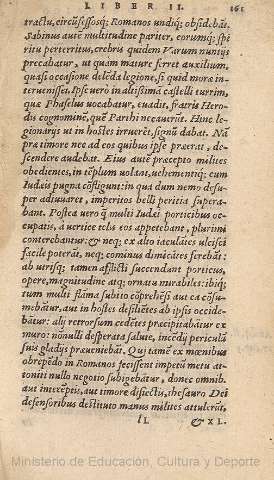 LIBER II. 161
tractu, circũsessosq; Romanos undiq; obsidebãt.
Sabinus autẽ multitudine pariter, eorumq; spi
ritu perterritus, crebris quidem Varum nuntijs
precabatur, ut quam mature ferret auxilium,
quasi occasione delẽda legione, si quid moræ in
teruenisset. Ipse uerò in altissimã castelli turrim,
quæ Phaselus uocabatur, euadit, fratris Hero-
dis cognomine, quẽ Parthi necauerũt. Hinc le-
gionarys ut in hostes irruerẽt, signũ dabat. Nã
præ timore nec ad eos quibus ipse præerat, de-
scendere audebat. Eius autẽ præcepto milites
obedientes, in tẽplum uolant, uehementiq; cum
Iudæis pugna cõfligunt: in qua dum nemo desu-
per adiuuaret, imperitos belli peritia supera-
bant. Postea uerò q̃ multi Iudæi porticibus oc-
cupatis, a uertice tela eos appetebant, plurimi
conterebantur: & neq; ex alto iaculates ulcisci
facile poterãt, neq; cominus dimicãtes ferebãt:
ab utrisq; tamen afflicti succendunt porticus,
opere, magnitudine atq; ornatu mirabiles: ibiq;
tum multi flãma subito cõprehẽsi aut ea cõsu-
mebãtur, aut in hostes desiliẽtes ab ipsis occide-
bãtur: alij retrorsum cedẽtes præcipitabãtur ex
muro: nonulli desperata salute, incẽdij periculũ
suis gladijs præueniebãt. Qui tamẽ ex mœnibus
obrepẽdo in Romanos fecissent impetũ metu at-
toniti nullo negotio subigebãtur, donec omnib.
aut interẽptis, aut timore disiectis, thesauro Dei
defensoribus destituto manus milites attulerũt,
ll & XL.
Ministerio de Educación, Cultura y Deporte